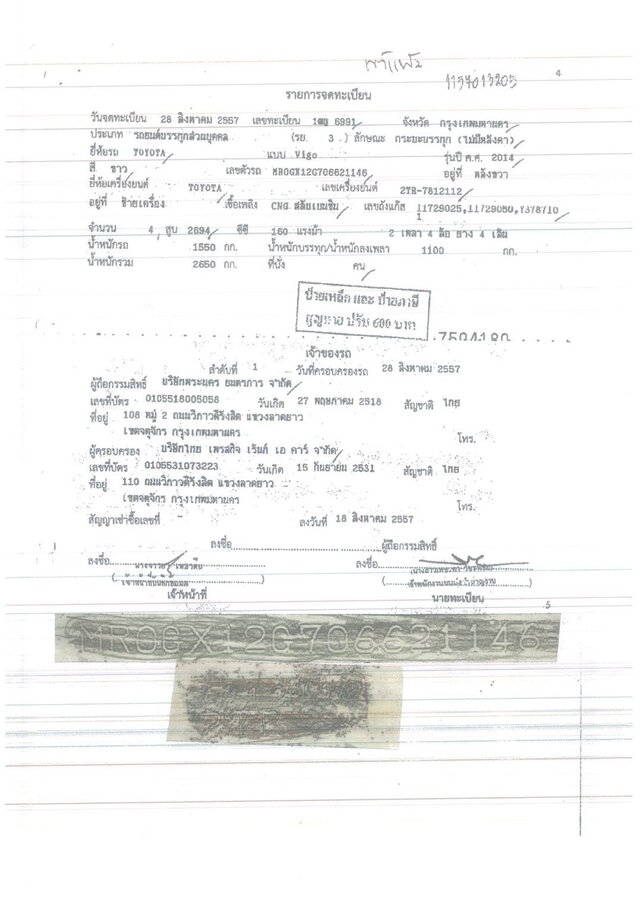 1137013205
4
รายการจดทะเบียน
วันจดทะเบียน 28 สิงหาคม 2557 เลขทะเบียน 6991 จังหวัด กรุงเทพมหานคร
ประเภท รถยนต์บรรทุกส่วนบุคคล (รย. 3 ) ลักษณะ กระบะบรรทุก (ไม่มีหลังคา)
ยี่ห้อรถ TOYOTA แบบ Vigo รุ่นปี ค.ศ. 2014
สี ขาว เลขตัวรถ MR0CX12G706621146 อยู่ที่ หลังขวา
ยี่ห้อเครื่องยนต์ TOYOTA เลขเครื่องยนต์ 2TR-7812112
อยู่ที่ ซ้ายเครื่อง เชื้อเพลิง CNG สลับเบนซิน เลขถังแก๊ส 11729025,11729050,
จำนวน 4 สูบ 2694 ซีซี 160 แรงม้า 2 เพลา 4 ล้อ ยาง 4 เส้น
น้ำหนักรถ 1550 กก. น้ำหนักบรรทุก/น้ำหนักลงเพลา 1100 กก.
น้ำหนักรวม 2650 กก. ที่นั่ง คน
ป้ายเหล็ก และ ป้ายภาษี
สูญหาย ปรับ 600 บาท
เจ้าของรถ
ลำดับที่ 1 วันที่ครอบครองรถ 28 สิงหาคม 2557
ผู้ถือกรรมสิทธิ์ บริษัทพระนคร ยนตรการ จำกัด
เลขที่บัตร 0105518005058 วันเกิด 27 พฤษภาคม 2518 สัญชาติ ไทย
ที่อยู่ 108 หมู่ 2 ถนนวิภาวดีรังสิต แขวงลาดยาว
เขตจตุจักร กรุงเทพมหานคร
โทร.
ผู้ครอบครอง บริษัทไทย เพรสทิจ เร้นท์ เอ คาร์ จำกัด
เลขที่บัตร 0105531073223 วันเกิด 15 กันยายน 2531 สัญชาติ ไทย
ที่อยู่ 110 ถนนวิภาวดีรังสิต แขวงลาดยาว
เขตจตุจักร กรุงเทพมหานคร
โทร.
สัญญาเช่าซื้อเลขที่ - ลงวันที่ 18 สิงหาคม 2557
ลงชื่อ ผู้ถือกรรมสิทธิ์
ลงชื่อ ลงชื่อ
เจ้าหน้าที่ นายทะเบียน
5
MR0CX12G706621146